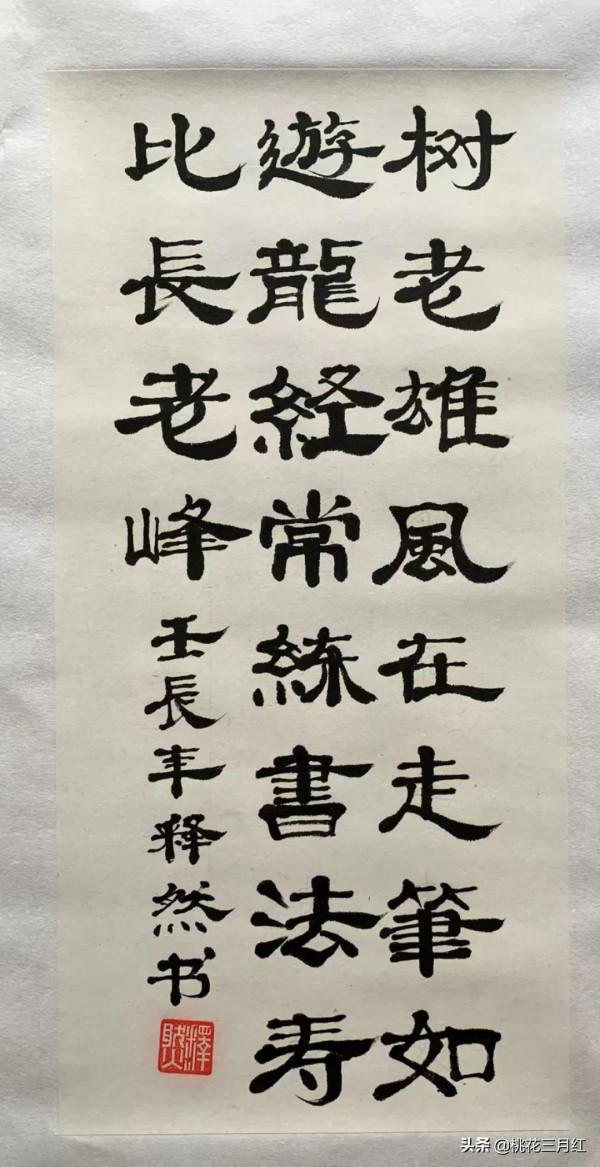 树老雄風在走筆如
遊龍経常练書法寿
比長老峰
壬辰年释然书
头条 @桃花三月红